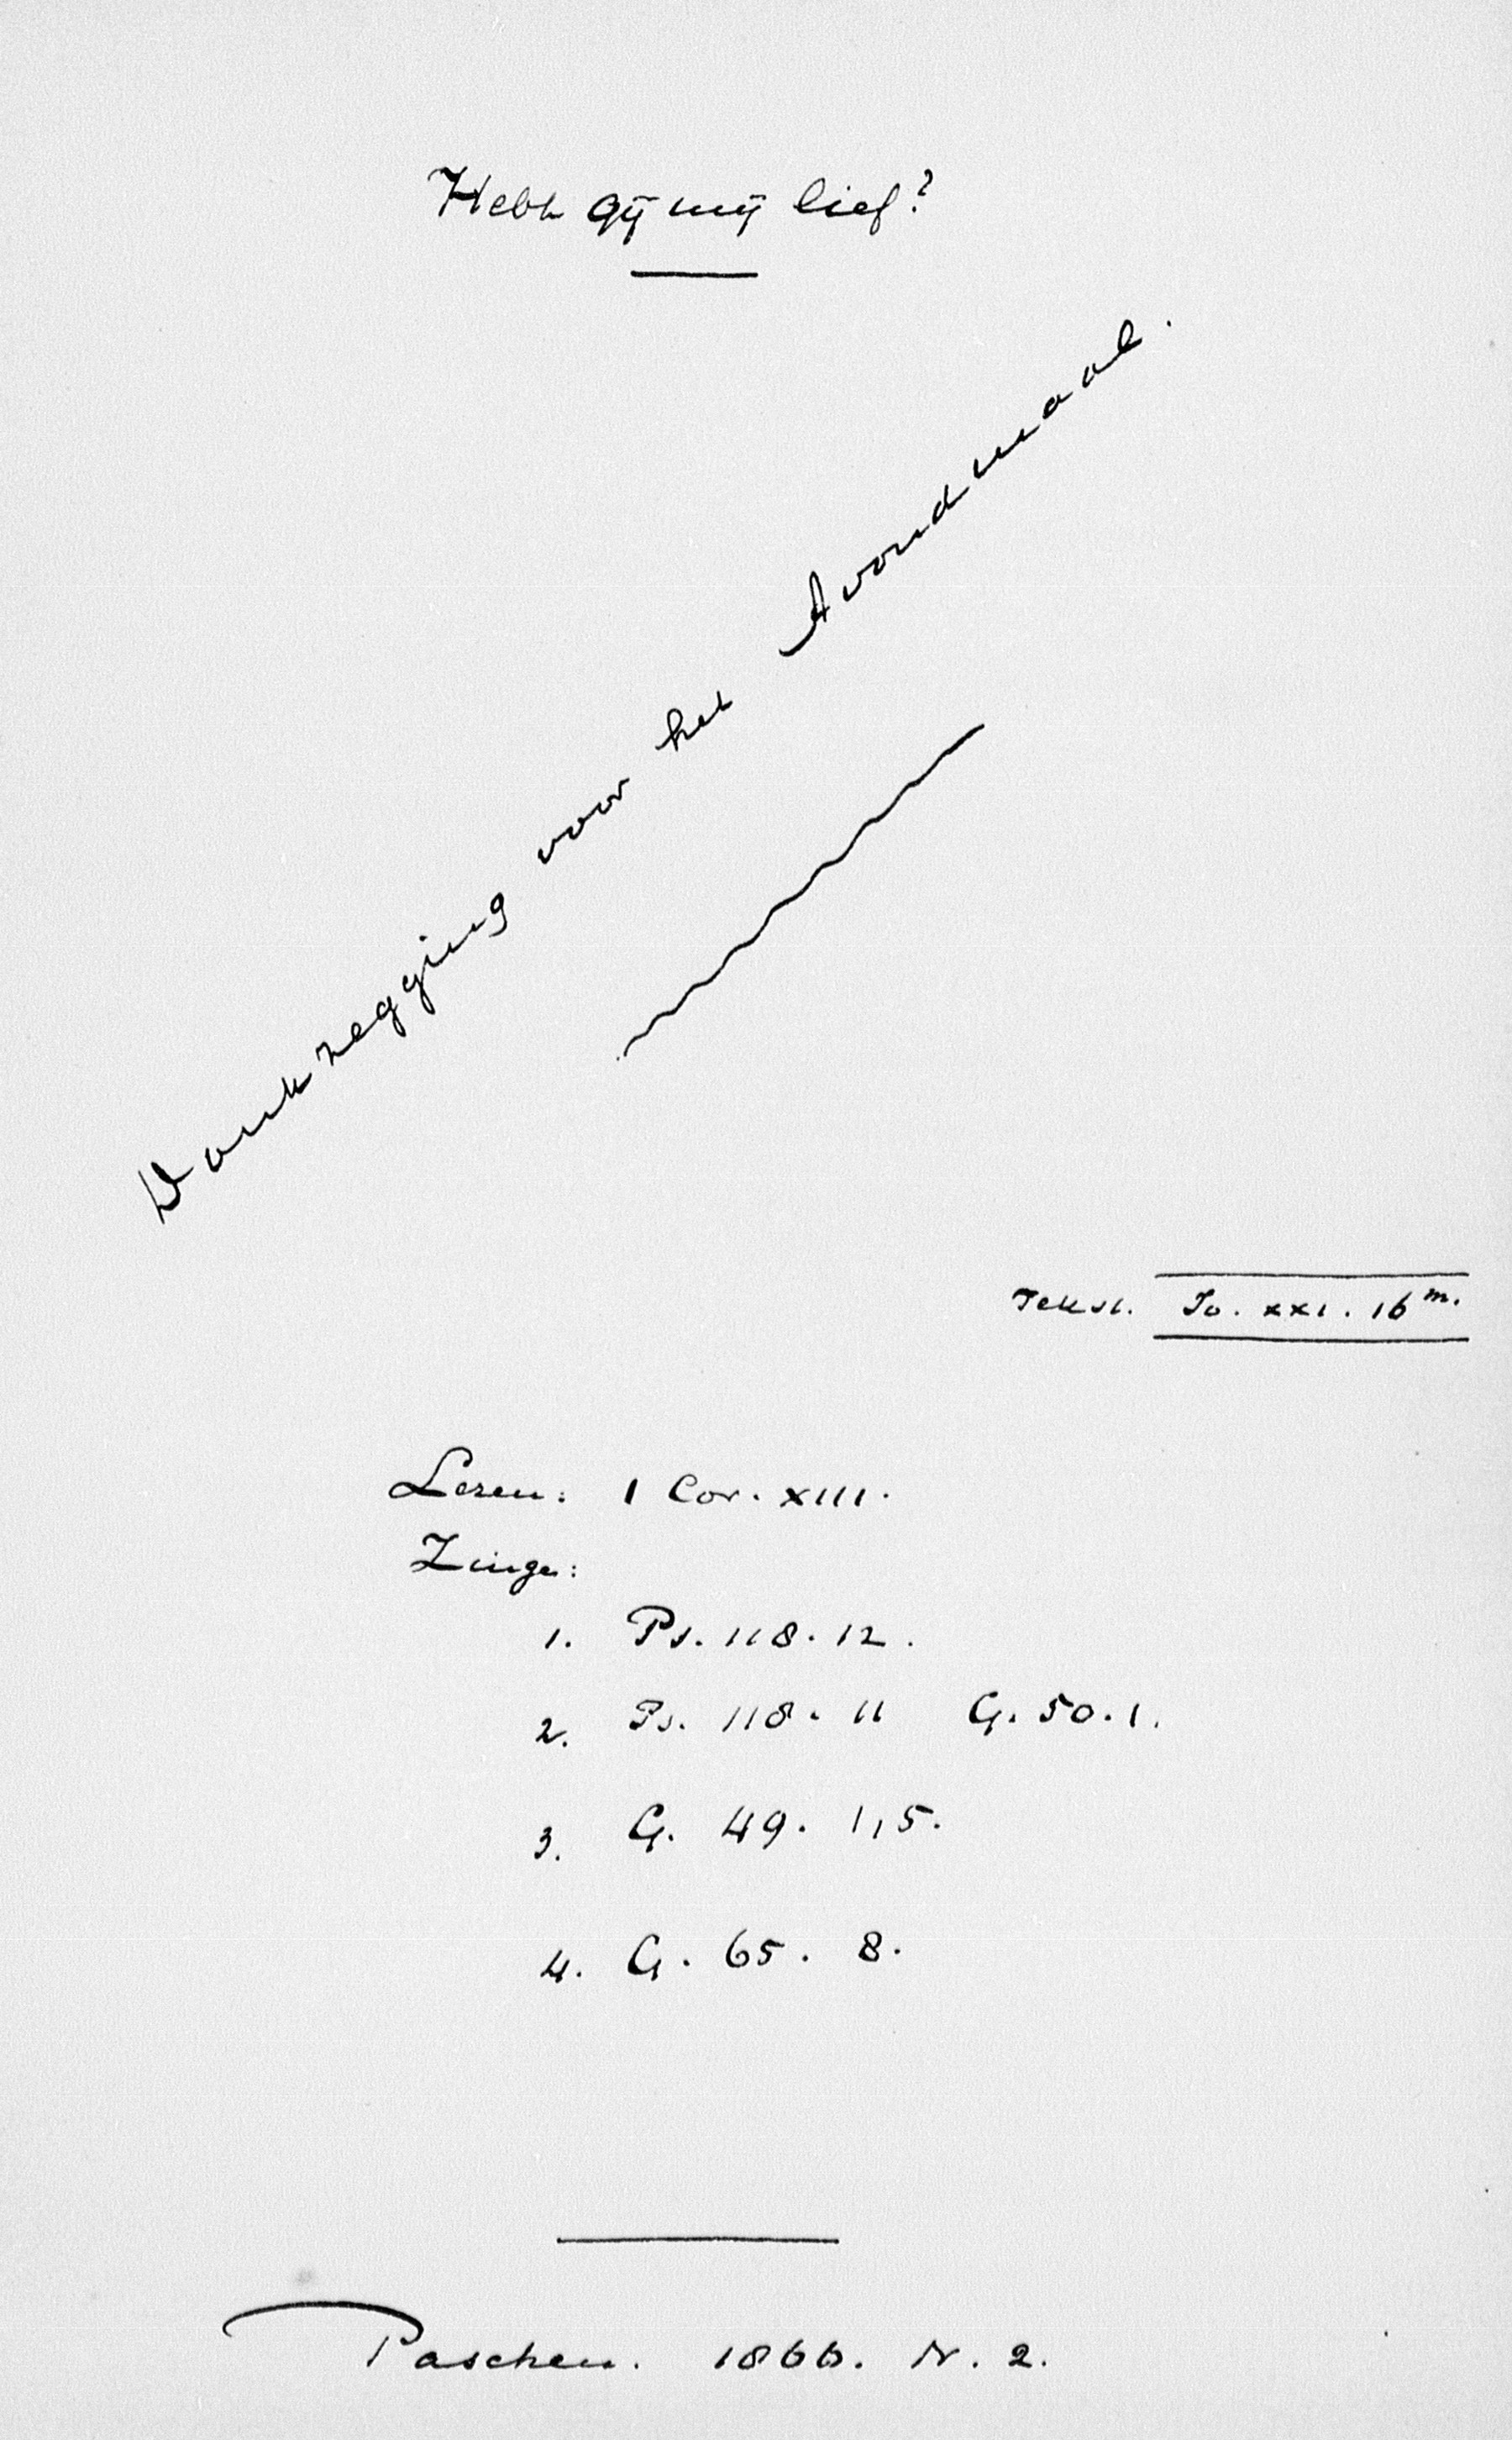 Hebt gij mij lief?
Dankzegging voor het Avondmaal.
Tekst. Jo. XXI. 16 m.
Lezen: 1 Cor. XIII.
Zinge:
1. Ps. 118. 12.
2. Ps. 118. 11 G. 50. 1.
3. G. 49. 1, 5.
4. G. 65. 8.
Paschen. 1866. N. 2.